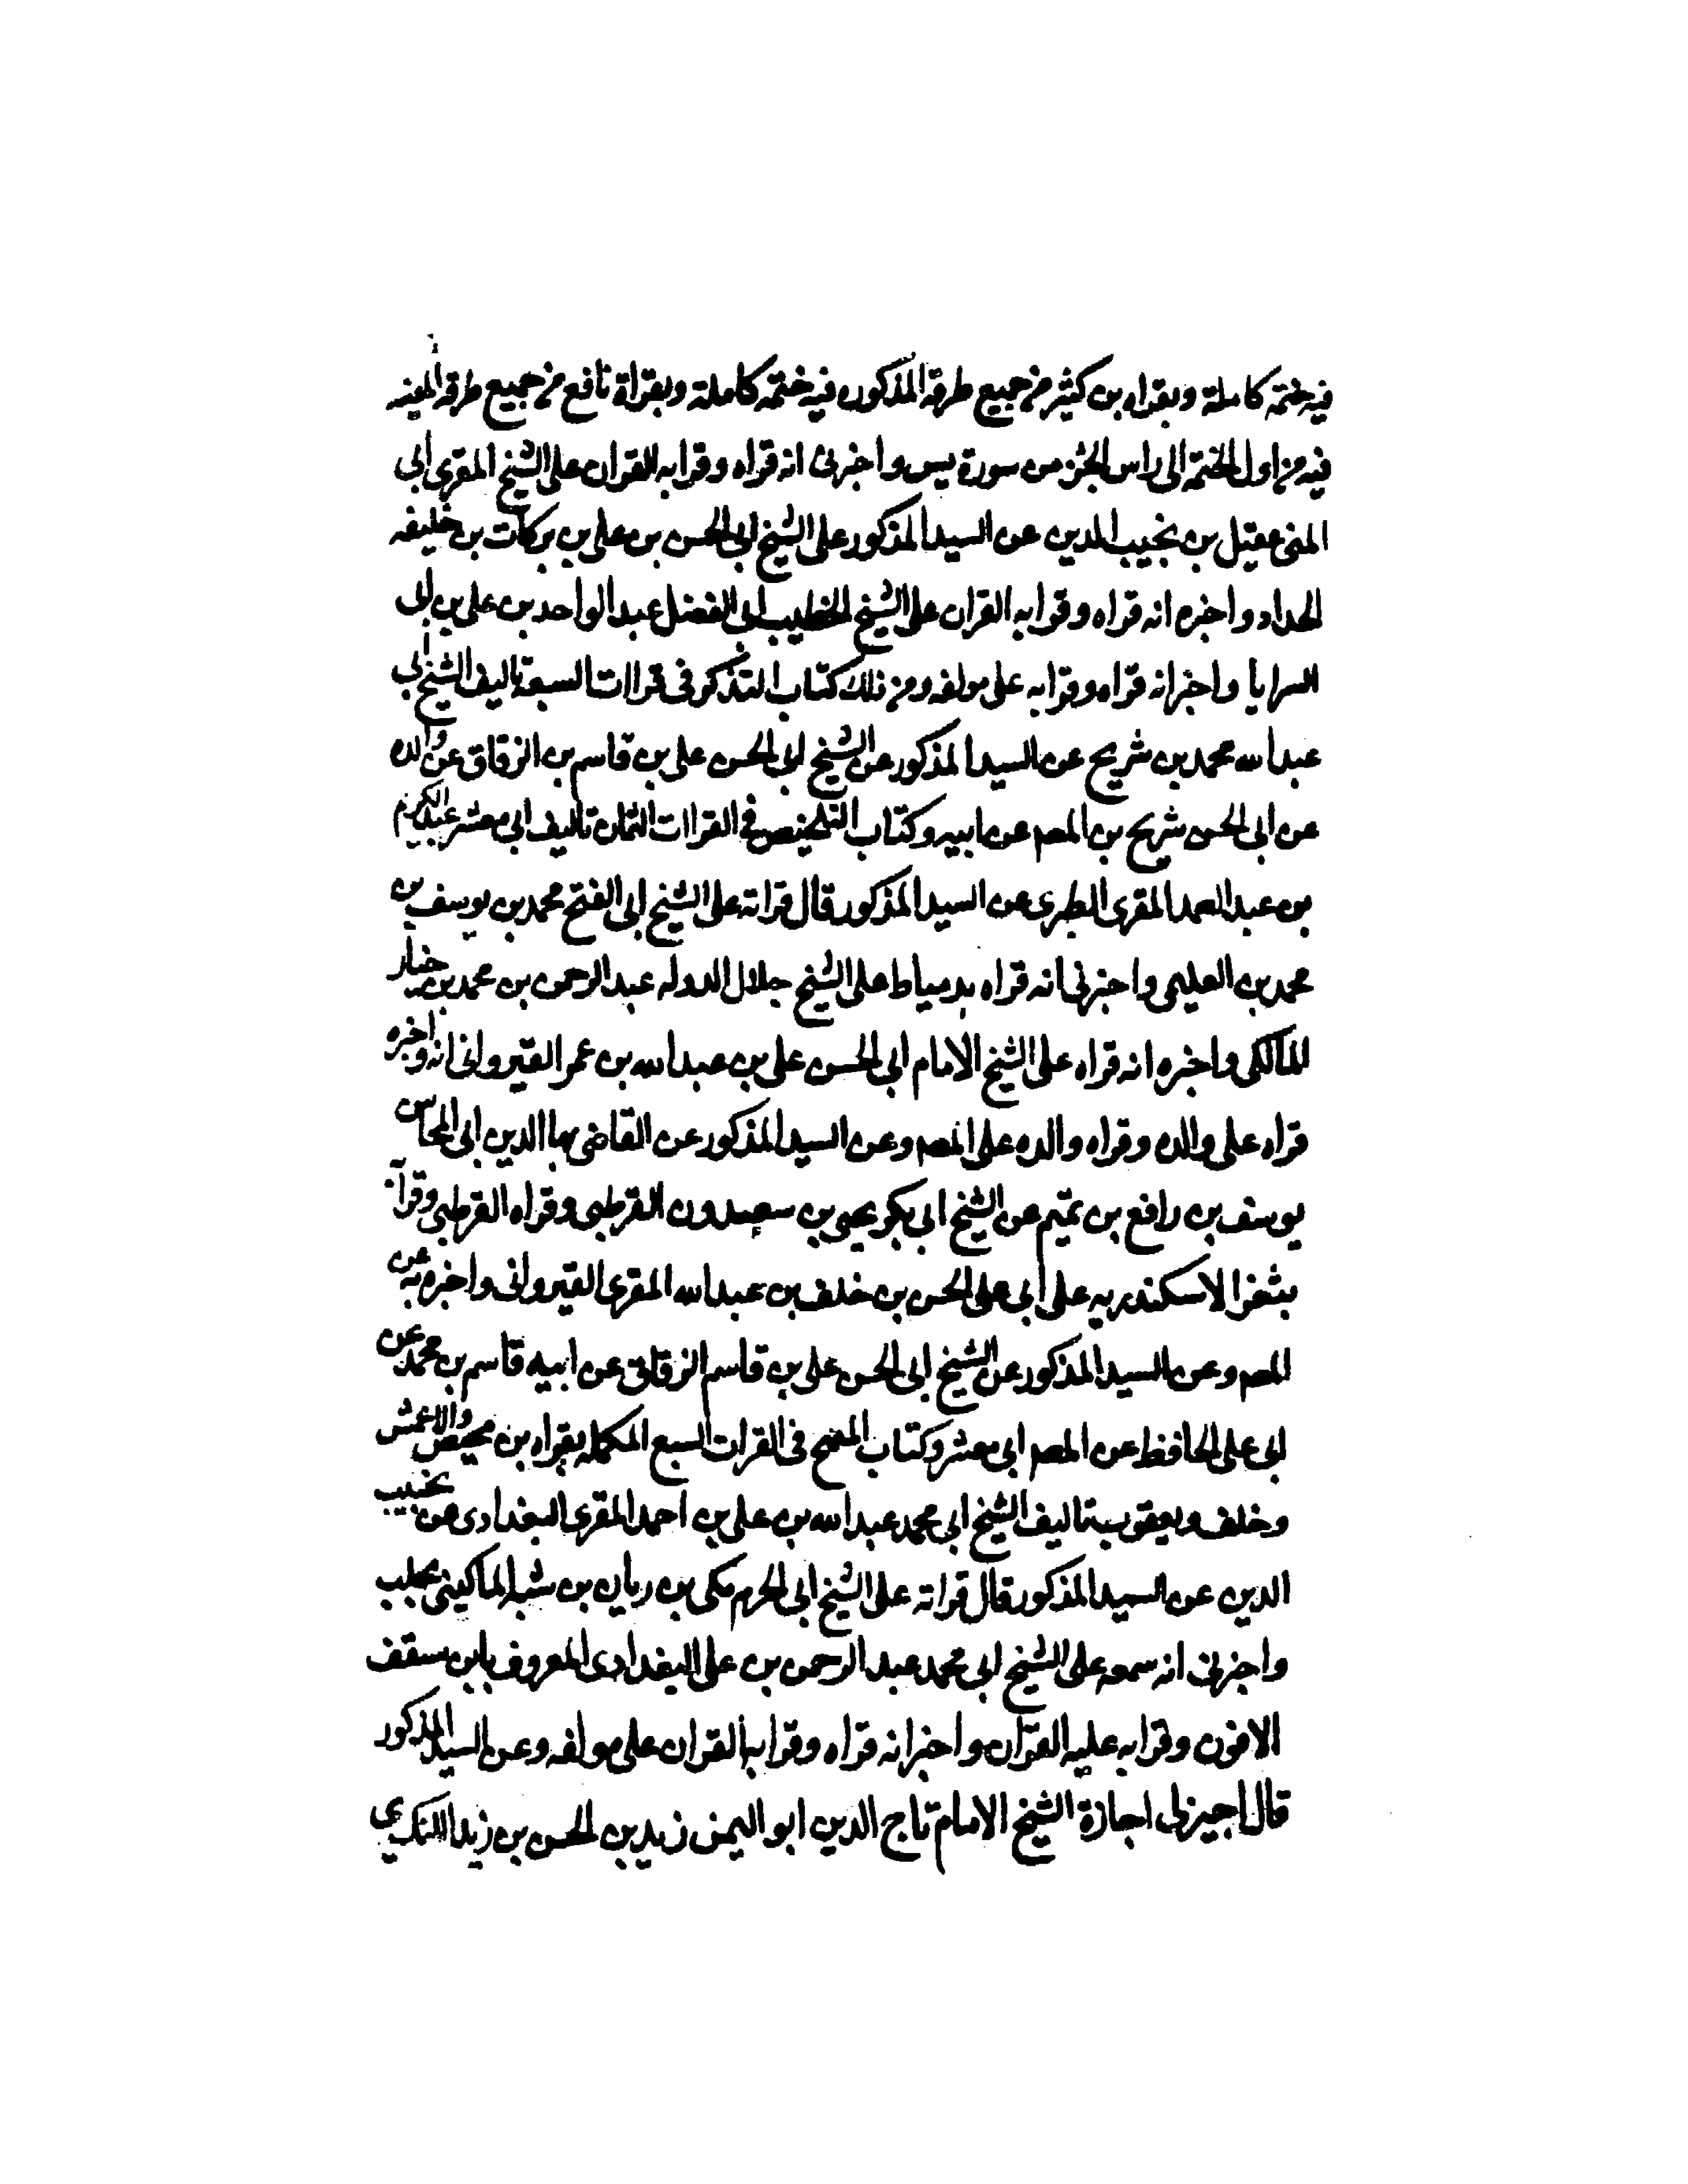 فيه ختمة كاملة وبقراه بن كثير من جميع طرقه المذكوره فيه ختمة كاملة وبقراة نافع من جميع طرقه المبينه
فيه من اول الختمة الى راس الجزء من سورة يس واخبرنى انه قراه وقرا به القران على الشيخ المقرى ابى
عقيل بن نجيب الدين عن السيد المذكور على الشيخ ابى الحسن بن على بن بركات بن خليفه
الحداد واخبره انه قراه وقرا به القران على الشيخ الخطيب ابى الفضل عبد الواحد بن على بن ابى
السرايا واخبر انه قراه وقرا به على مولفه ومن ذلك كتاب التذكر فى قراات السبعة تاليف الشيخ ابى
عبد الله محمد بن شريح عن السيد المذكور عن الشيخ ابى الحسن على بن قاسم بن الزقاق عن والده
عن ابى الحسن شريح بن المصم عن ابيه وكتاب التلخيص فى القراات الثمان تاليف ابى معشر عبد الكريم
بن عبد الصمد المقرى الطبرى عن السيد المذكور قال قراته على الشيخ ابى الفتح محمد بن يوسف بن
محمد بن العليمى واخبرنى انه قراه بدمياط على الشيخ جلال الدوله عبد الرحمن بن محمد بن خيار
المالكى واخبره انه قراه على الشيخ الامام ابى الحسن على بن عبد الله بن عمر القيروانى انه واخبره
قراه على والده وقراه والده على المصم وعن السيد المذكور عن القاضى بها الدين ابى المحاسن
يوسف بن رافع بن تميم عن الشيخ ابى بكر يحيى بن سعدون القرطبى وقراه القرطبى وقرآ
بثغر الاسكندريه على ابى على الحسن بن خلف بن عبد الله المقرى القيروانى واخبره به عن
المصم وعن السيد المذكور عن الشيخ ابى الحسن على بن قاسم الزقاق عن ابيه قاسم بن محمد عن
ابى على الحافظ عن المصم ابى معشر وكتاب المبهج فى القرات السبع المكمله بقراه بن محيصن والاعمش
وخلف ويعقوب تاليف الشيخ ابى محمد عبد الله بن على بن احمد المقرى البغدادى عن نجيب
الدين عن السيد المذكور قال قراته على الشيخ ابى الحرم مكى بن ريان بن شبه الماكينى بحلب
واخبرنى انه سمعه على الشيخ ابى محمد عبد الرحمن بن على البغدادى المعروف بابن سقف
وقرا به عليه القرآن واخبر انه قراه وقرا به القران على مولفه وعن السيد المذكور
قال اجيز لى اجازة الشيخ الامام تاج الدين ابو اليمن زيد بن الحسن بن زيد الكندي